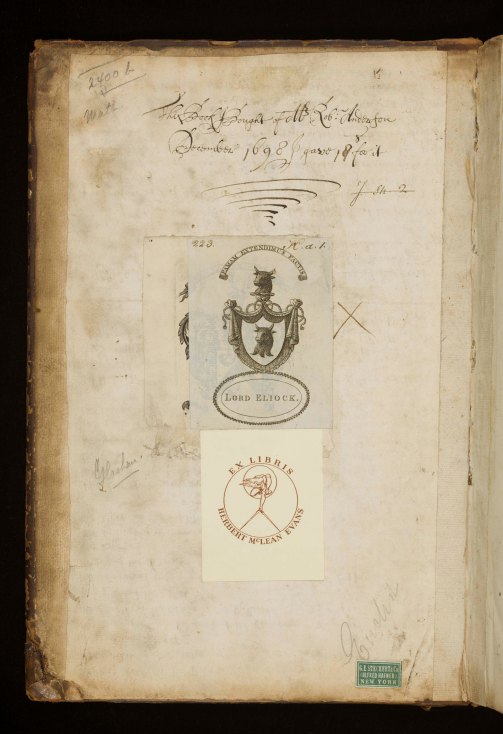 2400 b
This Book Bought of Mr Robt Anderson
December 1698 I gave 18s for it
223. A. a. 1.
FAMAM EXTENDIMUS FACTIS
LORD ELIOCK.
EX LIBRIS
HERBERT McLEAN EVANS
G. E. STECHERT & Co.
(ALFRED HAFNER)
NEW YORK